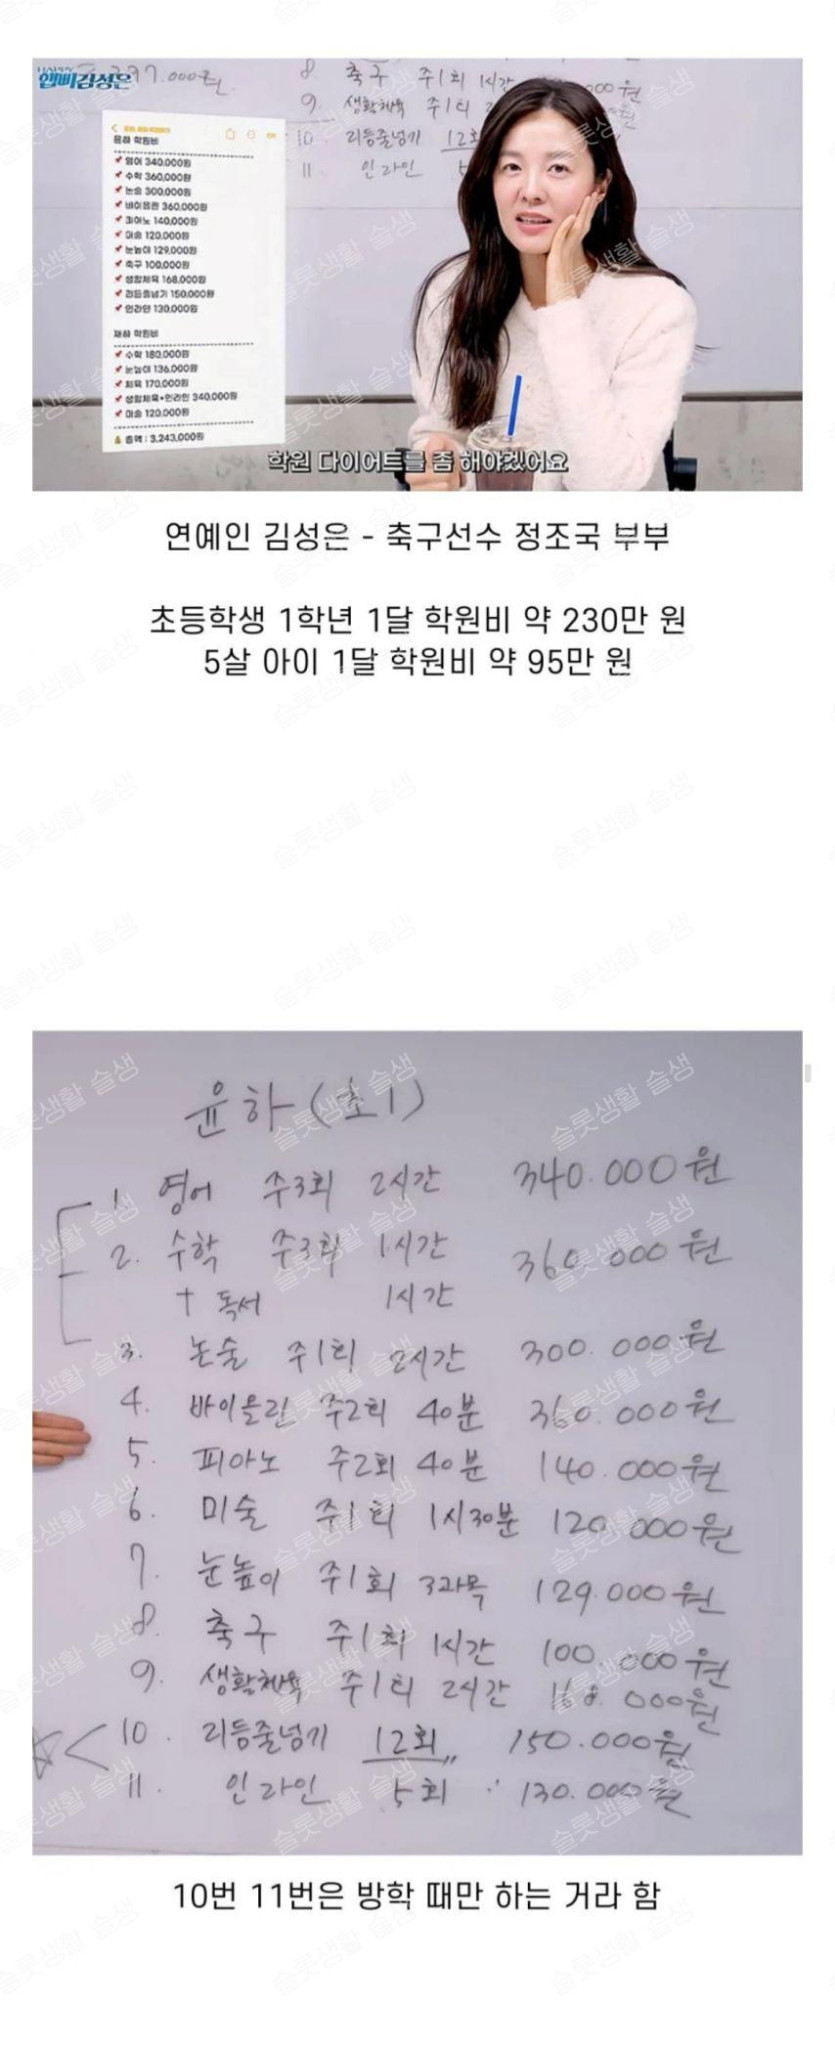 햅삐김성은
397.000원
8 축구 주1회 1시간 000원
9. 생활체육 주1회
10 리듬줄넘기 12회
11 인라인 5
윤하 학원비
영어 340.000원
수학 360.000원
논술 300.000원
바이올린 360.000원
피아노 140.000원
미술 120.000원
눈높이 129.000원
축구 100.000원
생활체육 168.000원
리듬줄넘기 150.000원
인라인 130.000원
재하 학원비
수학 180.000원
눈높이 136.000원
체육 170.000원
생활체육+인라인 340.000원
미술 120.000원
총액 : 3.243.000원
학원 다이어트를 좀 해야겠어요
연예인 김성은 - 축구선수 정조국 부부
초등학생 1학년 1달 학원비 약 230만 원
5살 아이 1달 학원비 약 95만 원
윤하 (초1)
1. 영어 주3회 2시간 340.000원
2. 수학 주3회 1시간 360.000원
+ 독서 1시간
3. 논술 주1회 2시간 300.000원
4. 바이올린 주2회 40분 360.000원
5. 피아노 주2회 40분 140.000원
6. 미술 주1회 1시30분 120.000원
7. 눈높이 주1회 3과목 129.000원
8. 축구 주1회 1시간 100.000원
9. 생활체육 주1회 2시간 168.000원
10. 리듬줄넘기 12회 150.000원
11. 인라인 5회 130.000원
10번 11번은 방학 때만 하는 거라 함
슬롯생활 슬생